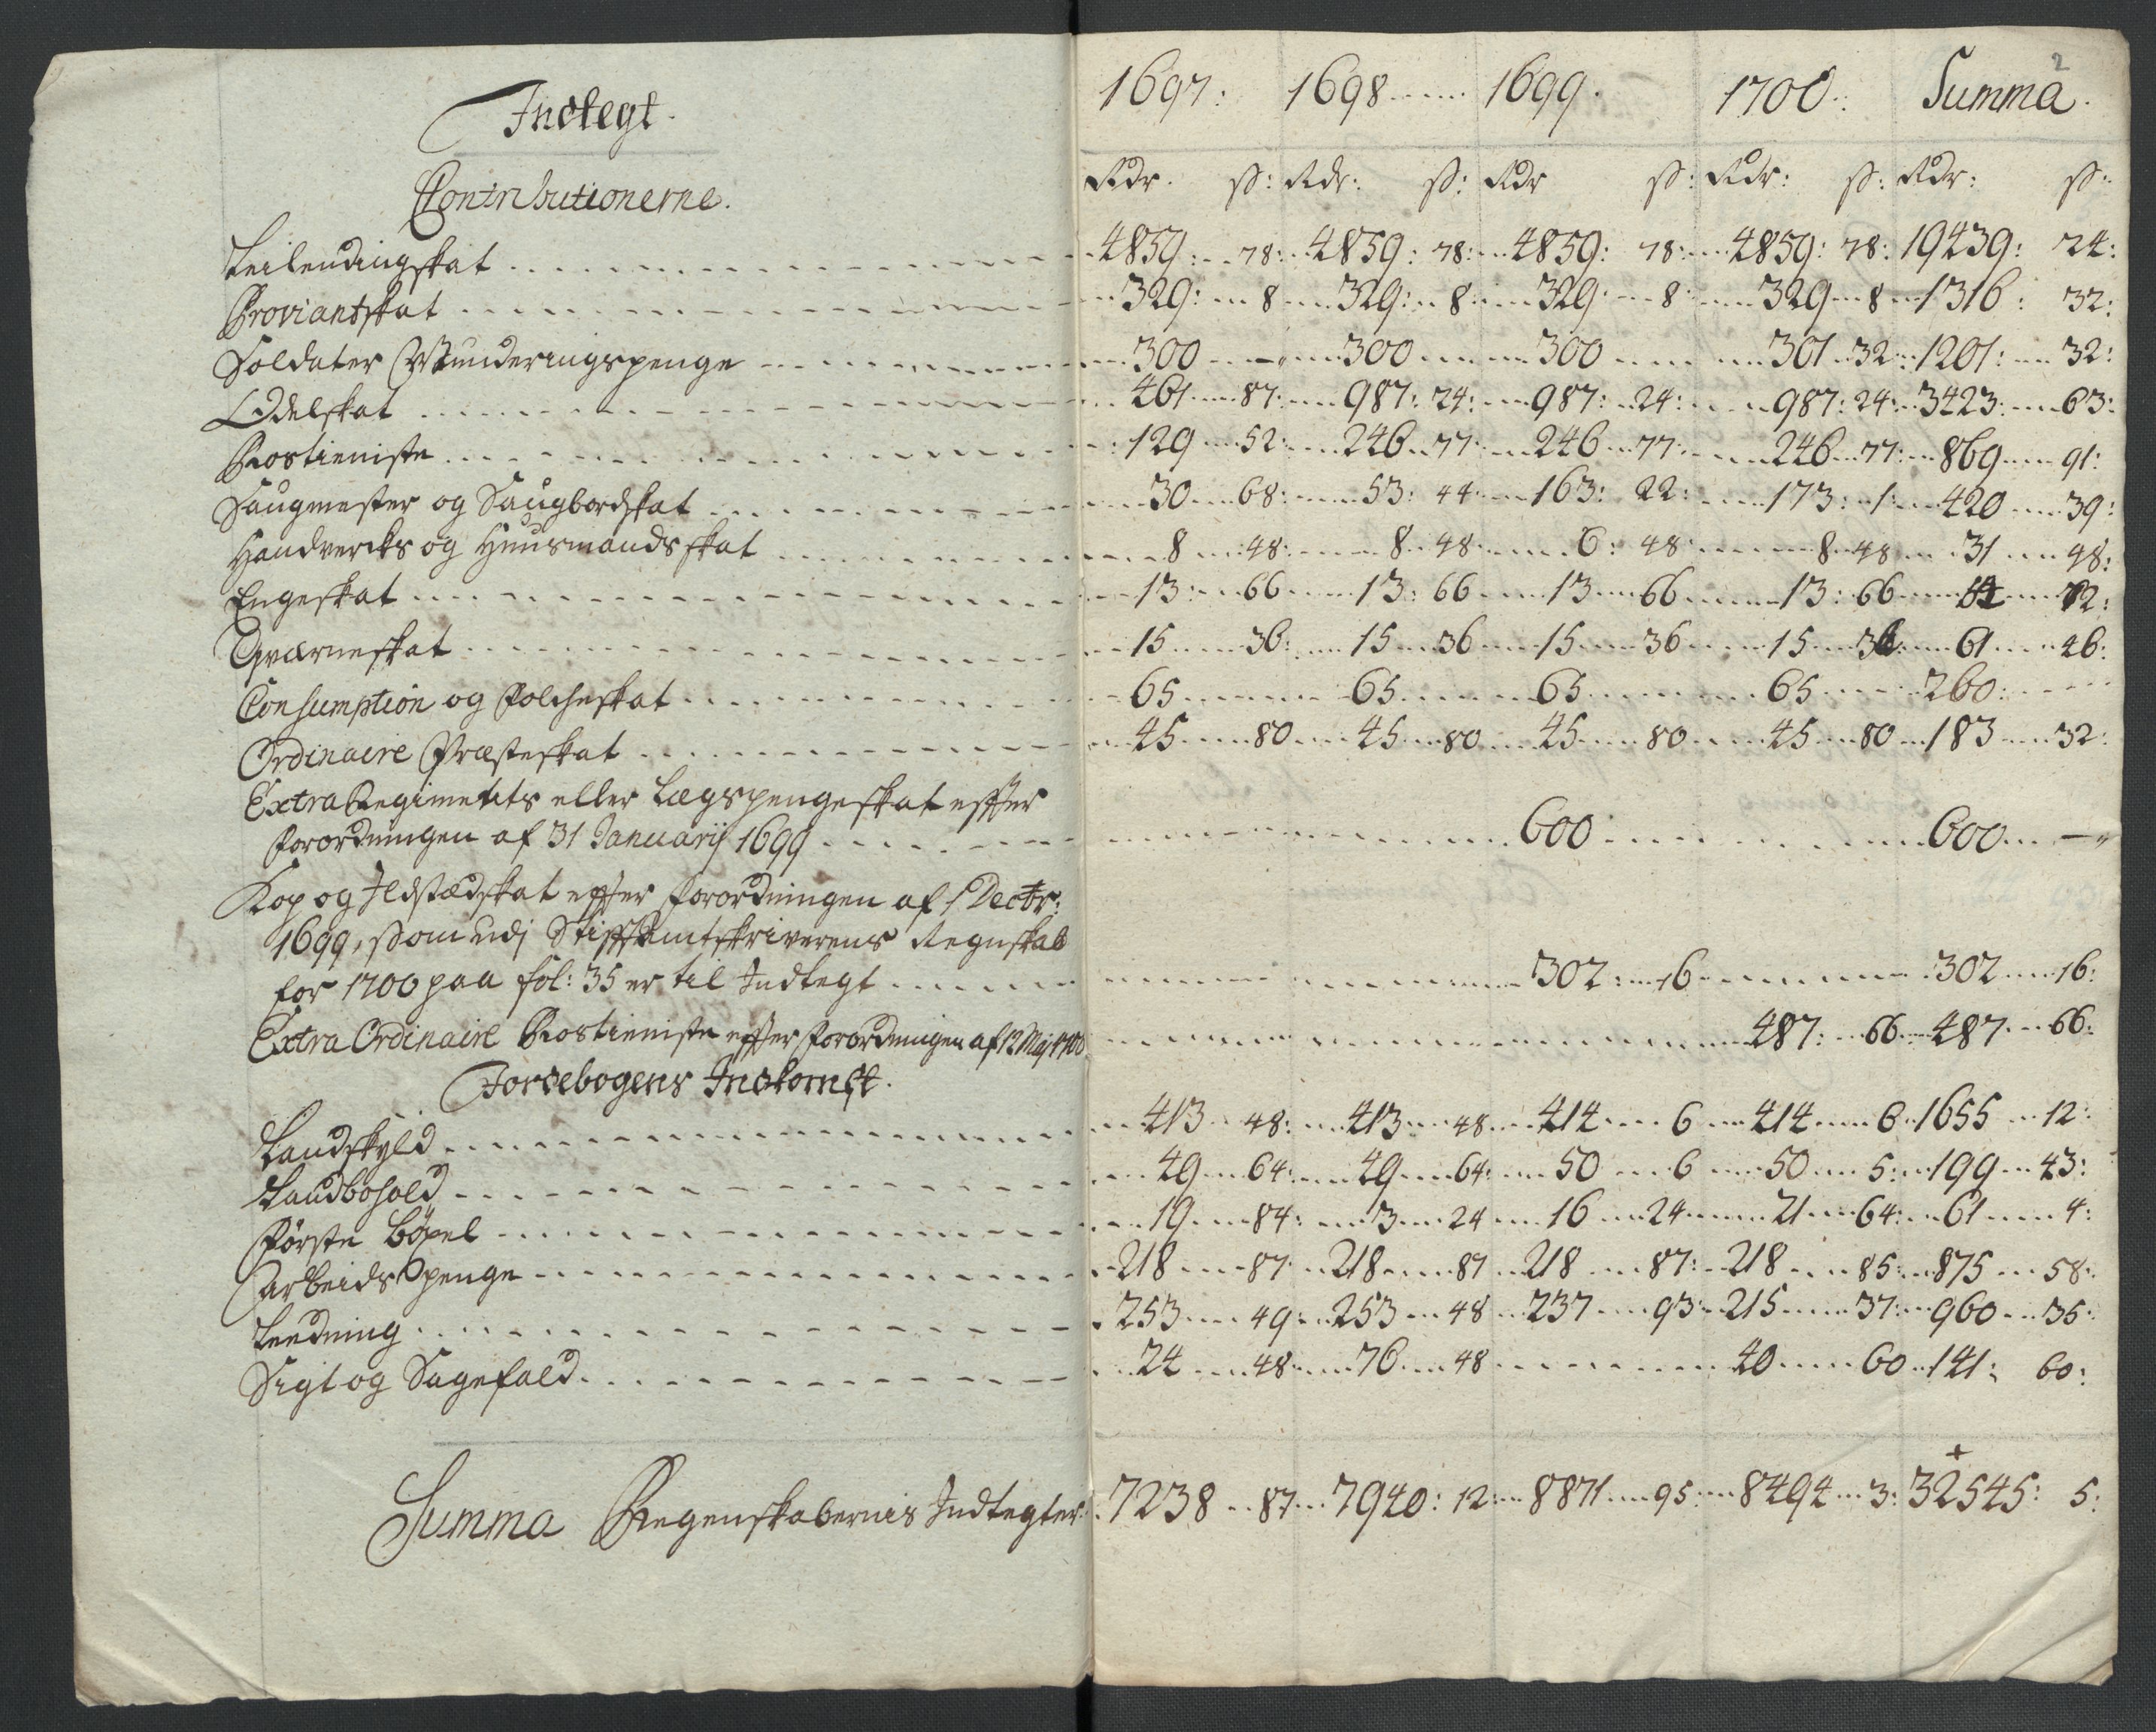 2
Indtegt. 1697: 1698 1699. 1700. Summa.
Contributionerne. Rdr. ß: Rdr: ß: Rdr ß: Rdr: ß: Rdr: ß:
Leilendingskat 4859: 78: 4859: 78: 4859: 78: 4859: 78: 19439: 24:
Proviantskat 329: 8 329: 8: 329 8 329 8 1316: 32:
Soldater Munderingspenge 300 - 300 300 301 32: 1201: 32:
Odelskat 461 87: 987: 24: 987: 24: 987: 24: 3423: 63:
Rostieniste 129 52: 246 77: 246 77: 246 77: 869 91:
Saugmester og Saugbordskat 30 68: 53: 44 163: 22: 173: 1: 420 39:
Handvercks og Huusmands skat 8 48: 8 48 6: 48 8 48 31 48:
Engeskat 13: 66 13: 66 13 66 13: 66 54 72:
Qværneskat 15 36: 15 36 15 36 15 36 61 46:
Consumption og Folcheskat 65 65 65 65 260:
Ordinaire Præsteskat 45 80 45 80 45 80 45 80 183 32:
Extra Regimentts eller Lægspengeskat effter
Forordningen af 31 Januarij 1699 600 600 -
Kop og Ildstædskat effter Forordningen af 1 Decbr:
1699, som udj Stifftamtskriverens Regnskab
for 1700 paa fol: 35 er til Indtegt 302: 16 302 16:
Extra Ordinaire Rostieniste effter Forordningen af 12 Maj 1700 487: 66 487 66:
Jordebogens Indkomst.
Landskyld 413 48: 413 48 414 6 414 6 1655 12:
Landbohold 49 64: 49 64: 50 6 50 5: 199 43:
Förste Böxel 19 84: 3 24 16 24 21 64: 61 4:
Arbeids Penge 218 87 218 87 218 87: 218 85: 875 58:
Leedning 253 49: 253 48 237 93: 215 37: 960 35:
Sigt og Sagefald 24 48 76 48 40 60 141: 60:
+
Summa Regenskabernis Indtegter: 7238 87 7940: 12: 8871 95: 8494 3: 32545: 5: